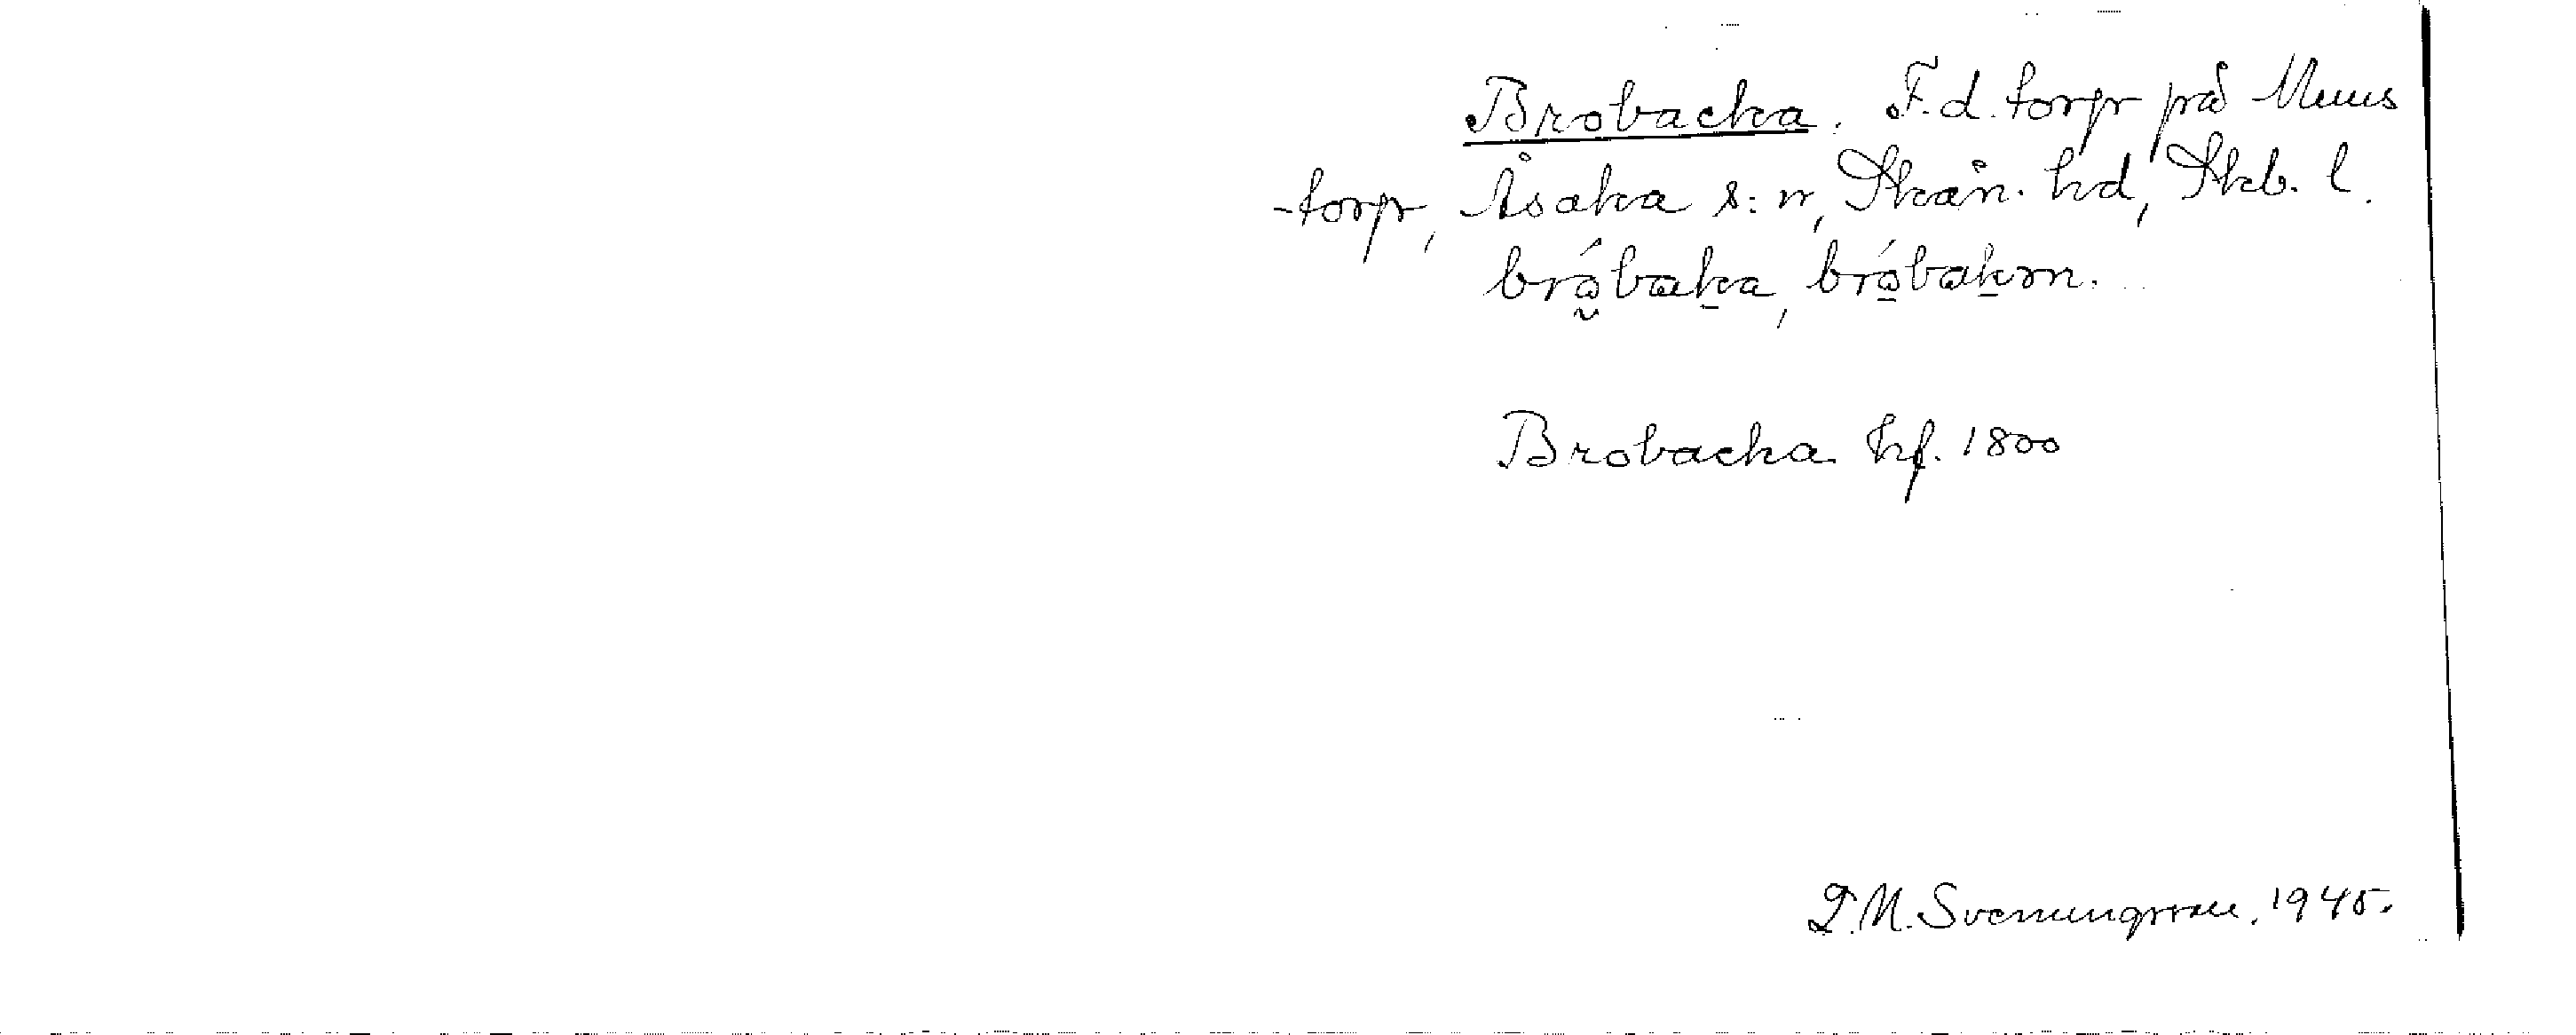 Brobacka. F.d. torp på Muus
-torp, Åsaka s:n, Skån. hd, Skb. l.
bróbaka, bróbakɔn.
Brobacka hf. 1800
D.N. Svenungsson. 1945.